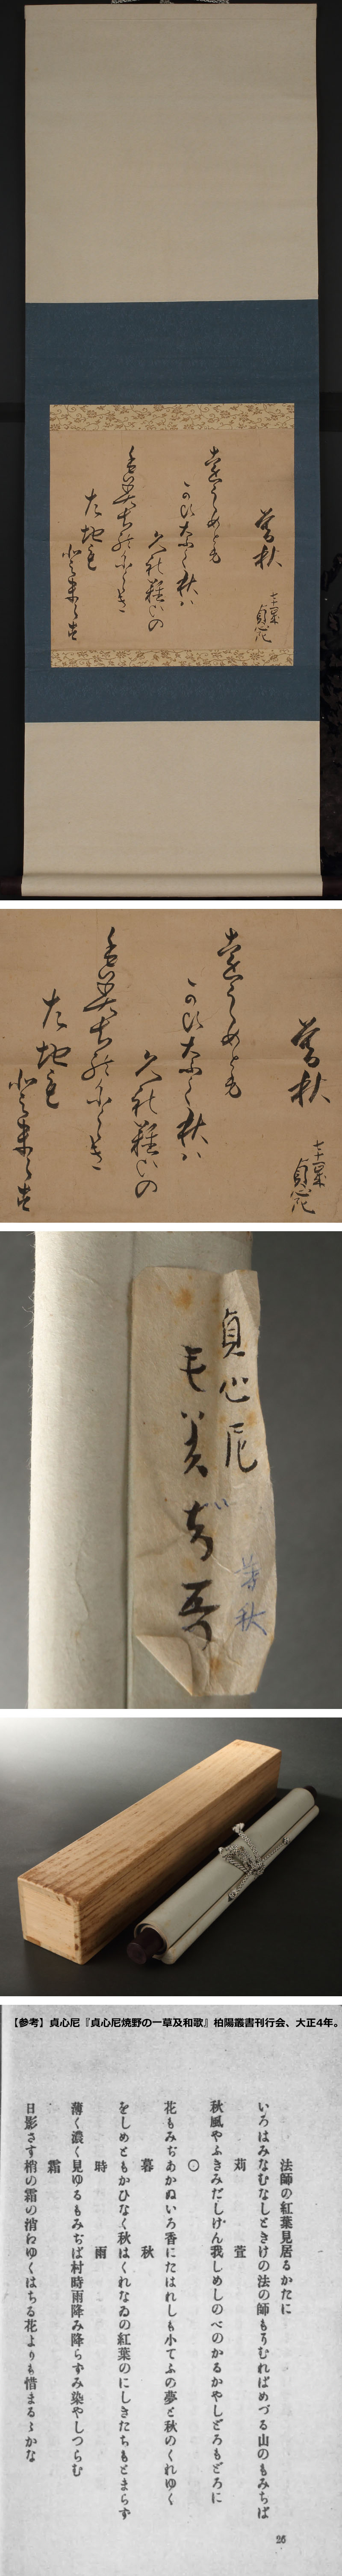 暮秋
貞心尼
をしめとも
かひなく秋ハ
くれなゐの
もみちのにしき
たちも
とまらす
暮秋
貞心尼
をしめとも
かひなく秋ハ
くれなゐの
もみちのにしき
たちも
とまらす
貞心尼
暮秋
もみぢ哥
【参考】貞心尼『貞心尼焼野の一草及和歌』柏陽叢書刊行会、大正4年。
法師の紅葉見居るかたに
いろはみなむなしときけの法の師もうむればめづる山のもみちば
苅萱
秋風やふきみだしけん我しめしのべのかるかやしどろもどろに
○
花もみぢあかぬいろ香にたはれしも小てふの夢と秋のくれゆく
暮秋
をしめともかひなく秋はくれなゐの紅葉のにしきたちもとまらず
時雨
薄く濃く見ゆるもみぢば村時雨降み降らずみ染やしつらむ
霜
日影さす梢の霜の消ねゆくはちる花よりも惜まるゝかな